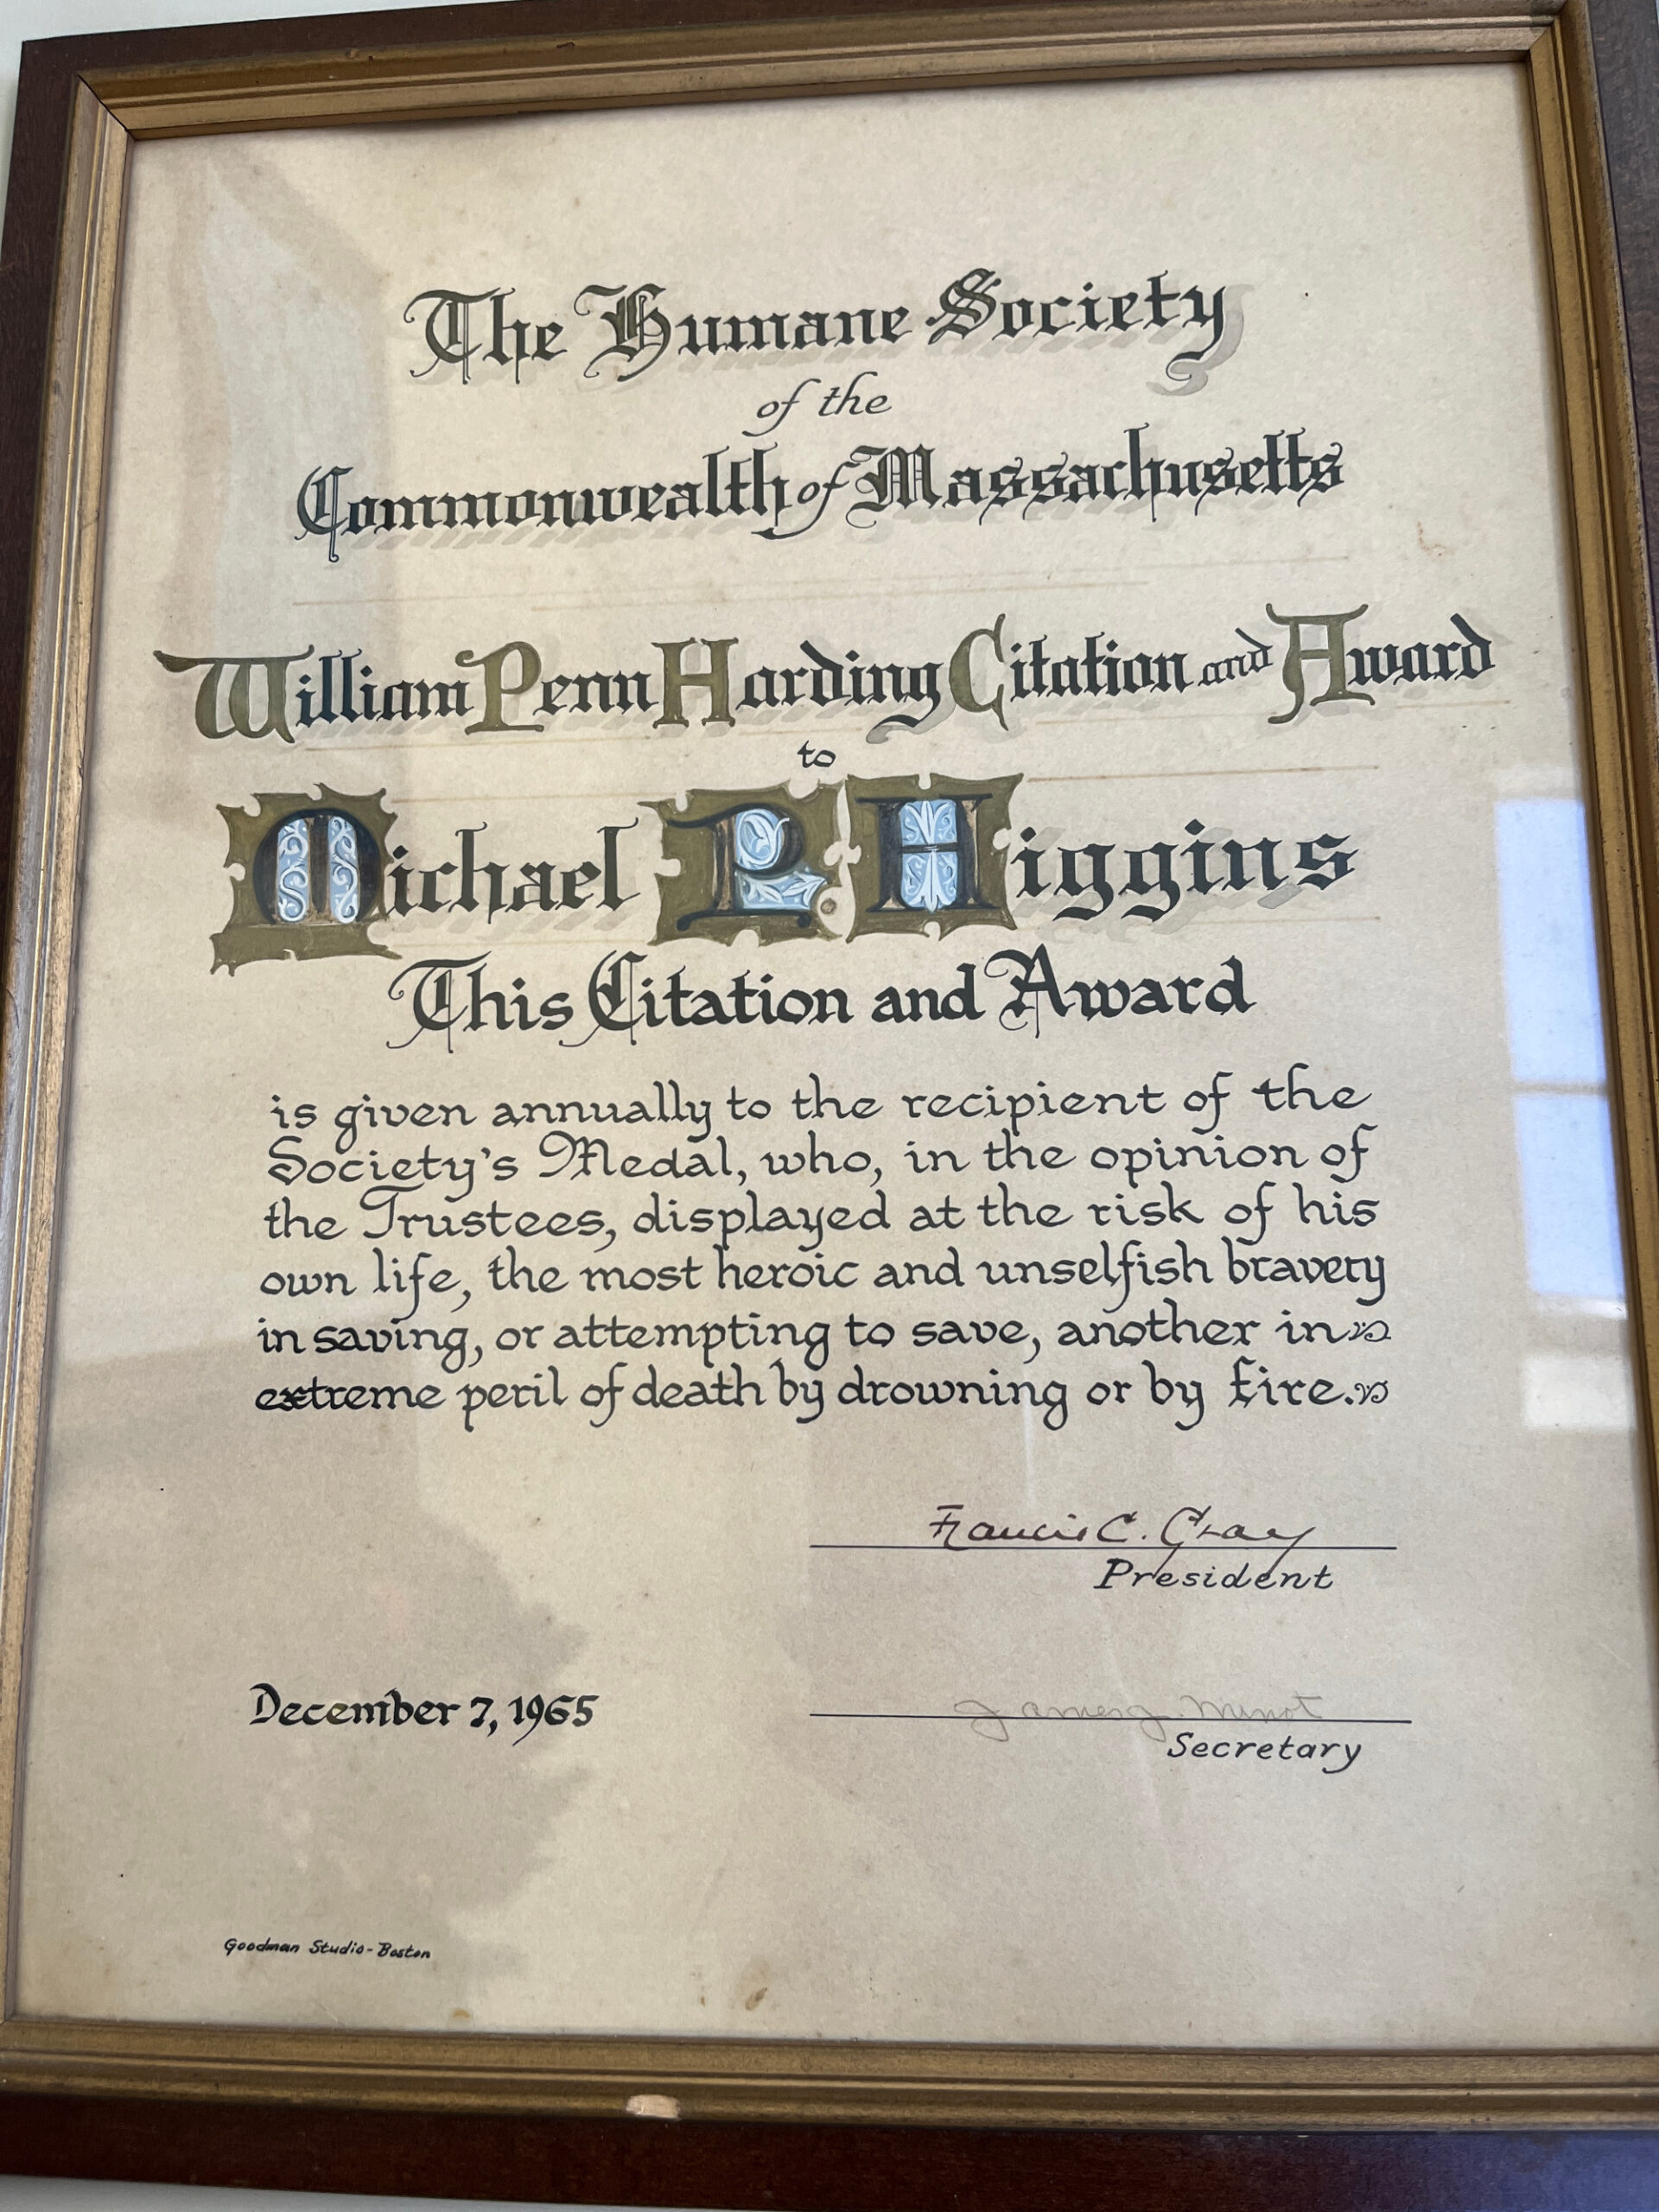 The Humane Society
of the
Commonwealth of Massachusetts
William Penn Harding Citation and Award
to
Michael P. Higgins
This Citation and Award
is given annually to the recipient of the
Society's Medal, who, in the opinion of
the Trustees, displayed at the risk of his
own life, the most heroic and unselfish bravery
in saving, or attempting to save, another in
extreme peril of death by drowning or by fire.
Francis C. Gray
President
December 7, 1965
James J. Minot
Secretary
Goodman Studio-Boston